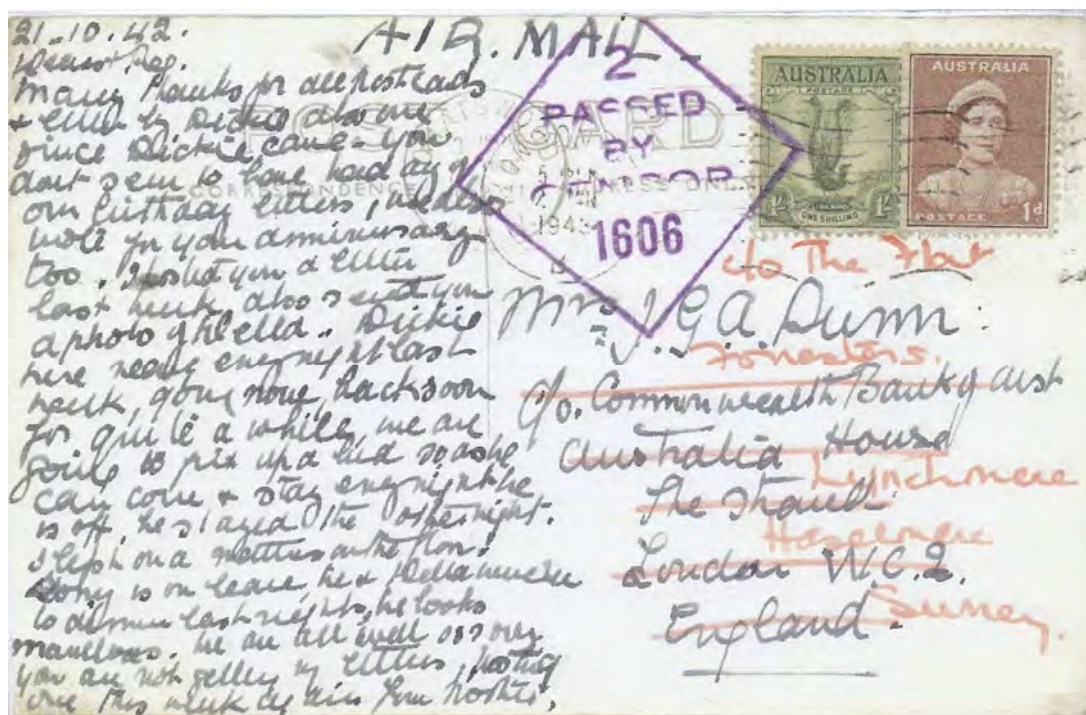 21.10.42.
AIR. MAIL
Dearest Reg.
Many thanks for all postcards
& letter by Dickie
since Dickie came - you
dont seem to have had any of
our birthday letters, we also
wrote for your anniversary
too. Posted you a letter
last week, also sent you
a photo of Della. Dickie
here nearly every night last
week, going back soon
for quite a while, we are
going to fix up a bed so as he
can come & stay every night he
is off, he stayed the other night.
slept on a mattress on the floor.
Tony is on leave, he & Della
to dinner last night, he looks
marvellous. We are all well so sorry
you are not getting my letters, posting
one this week again Your Mother,
POST CARD
CORRESPONDENCE
ADDRESS ONLY
2
PASSED
BY
CENSOR
1606
1943
AUSTRALIA
POSTAGE
1/-
ONE SHILLING
1/-
AUSTRALIA
POSTAGE
1d
c/o The Flat
Mrs J. G. A. Dunn.
Foresters.
c/o. Commonwealth Bank of Aust
Australia House
Lynchmere
The Strand
Haselmere
London W.C.2.
Surrey.
England.